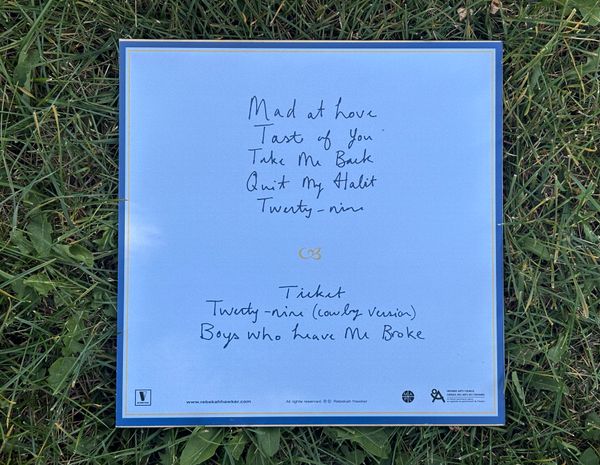 Mad at Love
Tast of You
Take Me Back
Quit My Habit
Twenty-nine
Ticket
Twenty-nine (cowboy version)
Boys who Leave Me Broke
www.rebekahhawker.com
All rights reserved ℗© Rebekah Hawker
ONTARIO ARTS COUNCIL
CONSEIL DES ARTS DE L'ONTARIO